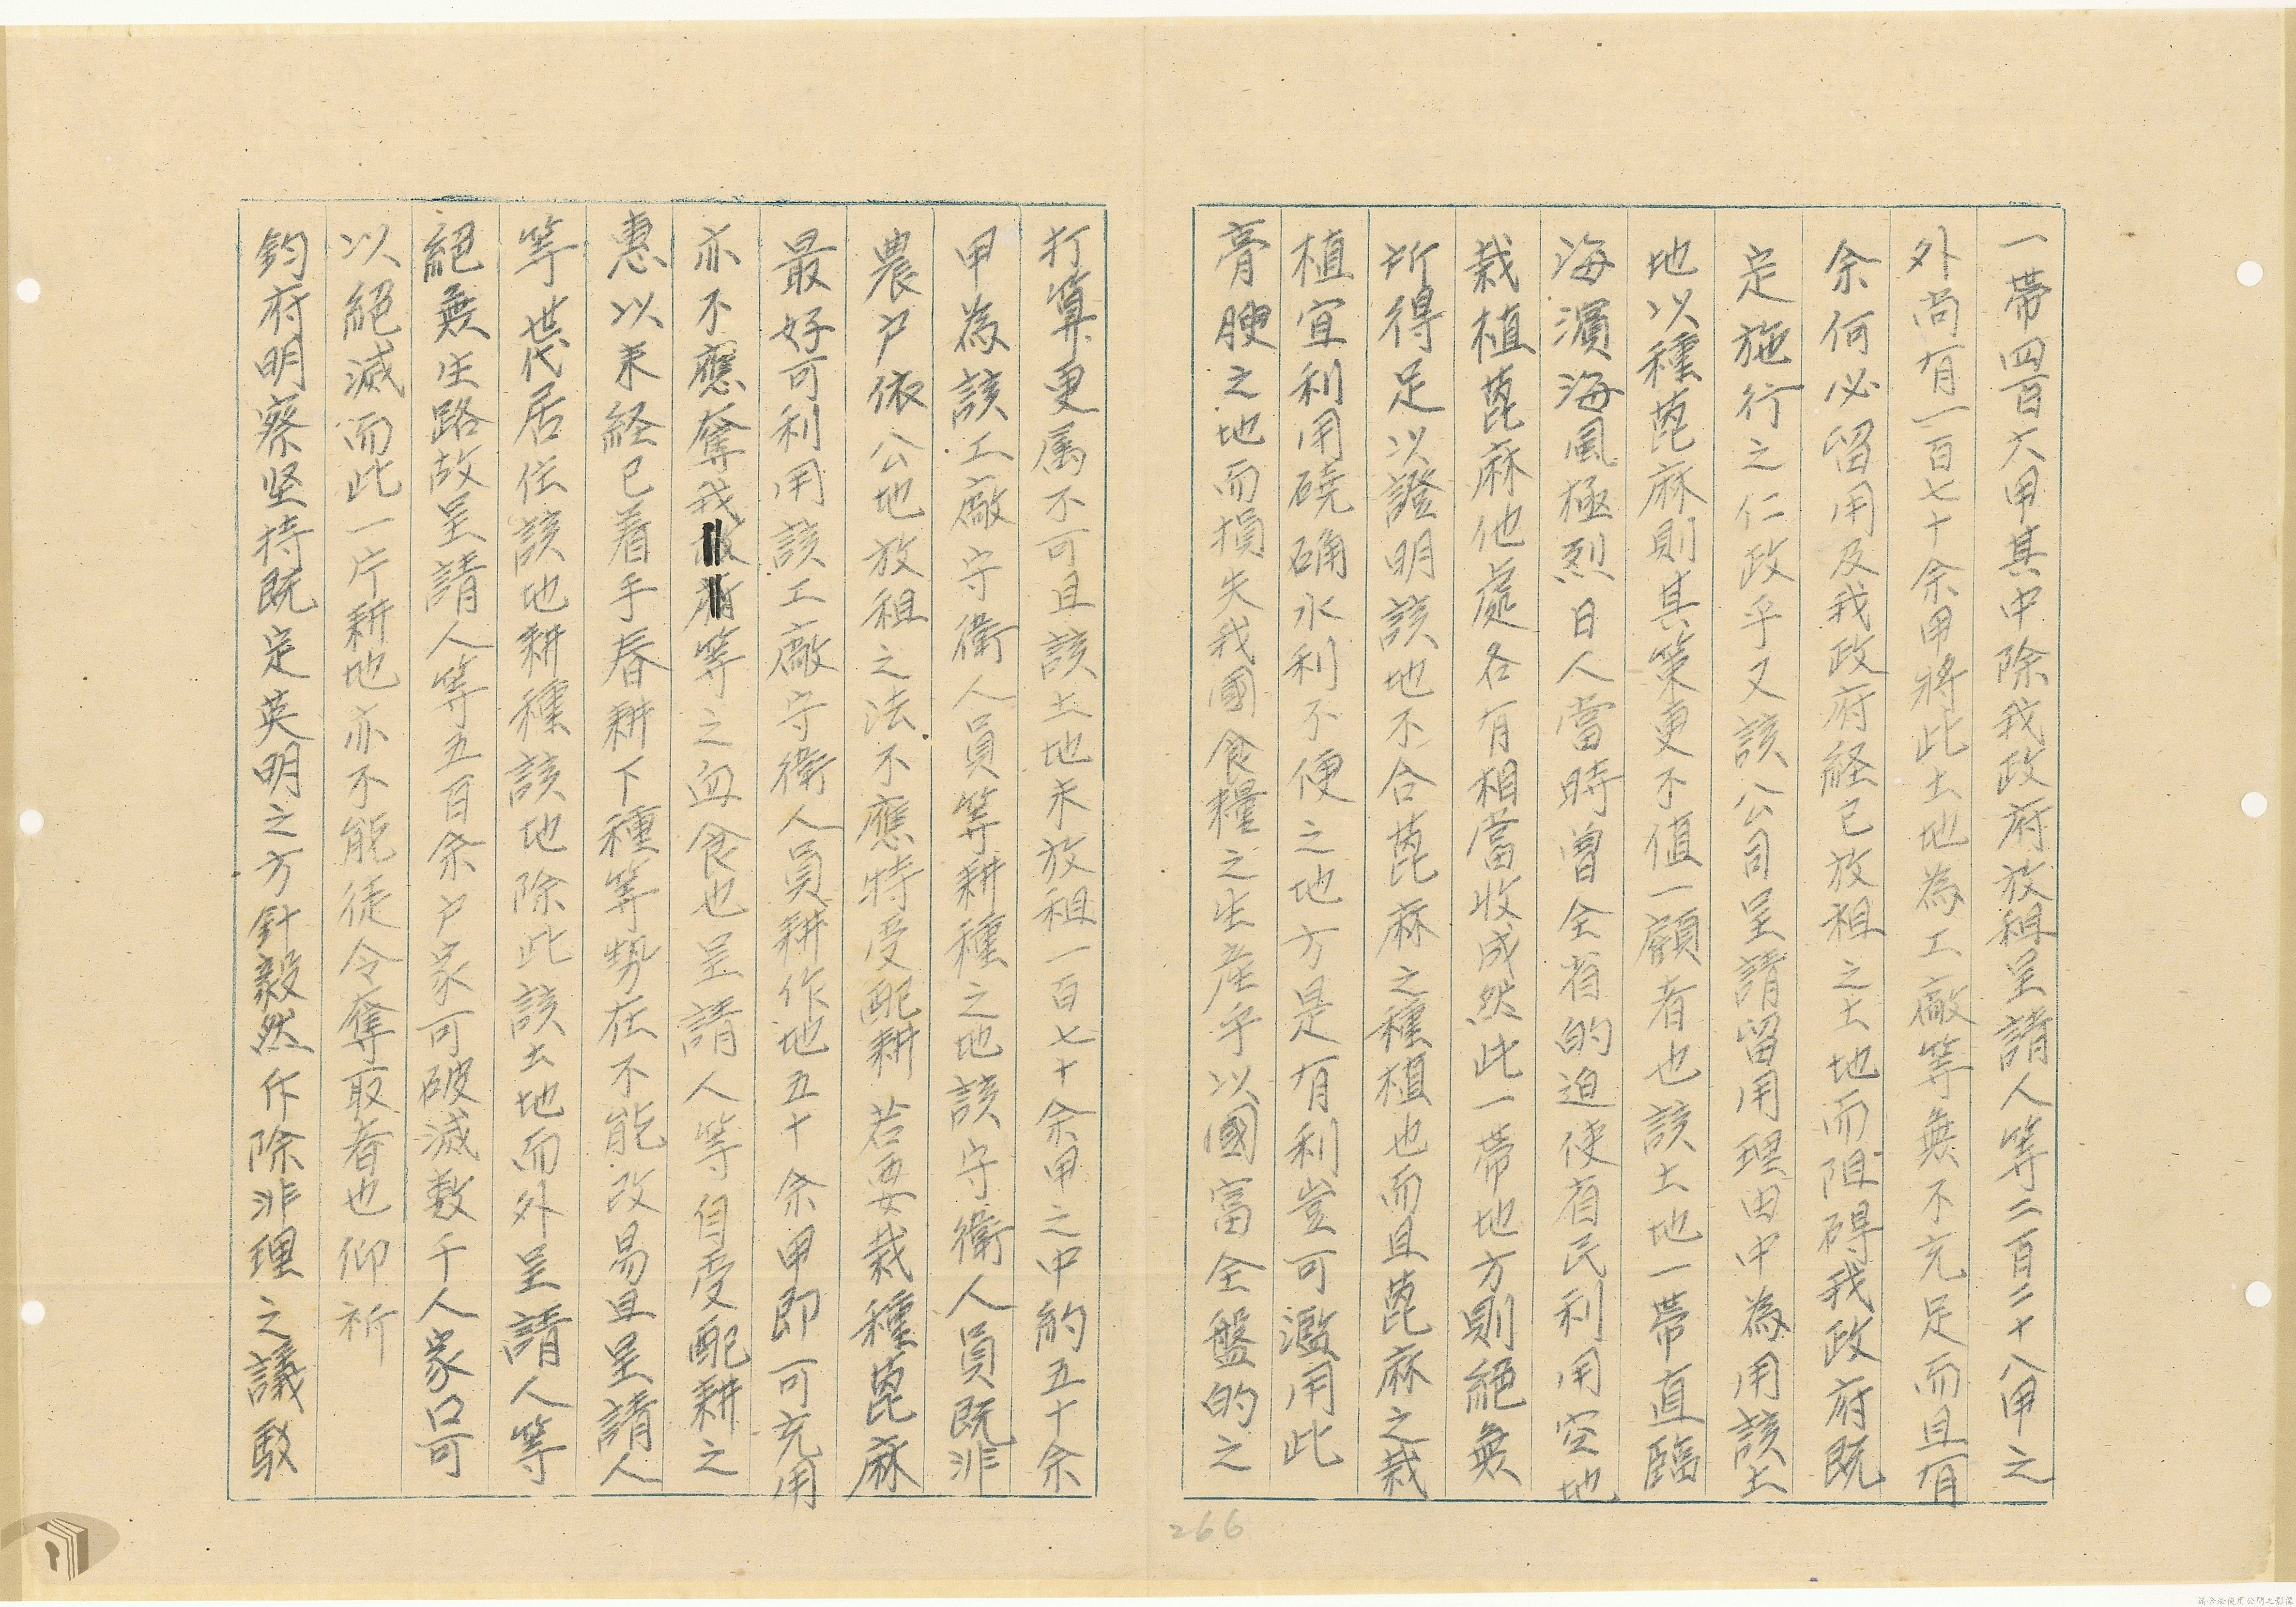 一帶四百六甲其中除我政府放租呈請人等二百二十八甲之
外尚有一百七十余甲將此土地為工廠等無不充足而且有
余何必留用及我政府経已放租之土地而阻碍我政府既
定施行之仁政乎又該公司呈請留用理由中為用該土
地以種萞麻則其策更不值一顧者也該土地一帶直臨
海濱海風極烈日人當時曾全省的迫使省民利用空地
栽植萞麻他處各有相當收成然此一帶地方則絕無
所得足以證明該地不合萞麻之種植也而且萞麻之栽
植宜利用磽确水利不便之地方是有利豈可濫用此
膏腴之地而損失我國食糧之生産乎以國富全盤的之
打算更属不可且該土地未放租一百七十余甲之中約五十余
甲為該工廠守衛人員等耕種之地該守衛人員既非
農户依公地放租之法不應特受配耕若要栽種萞麻
最好可利用該工廠守衛人員耕作地五十余甲即可充用
亦不應奪我等之血食也呈請人等自受配耕之
惠以来経已着手春耕下種等勢在不能改易且呈請人
等世代居住該地耕種該地除此該土地而外呈請人等
絕無生路故呈請人等五百余户家可破滅数千人家口可
以絕滅而此一片耕地亦不能徒令奪取者也仰祈
鈞府明察坚持既定英明之方針毅然斥除非理之議駁
266
請合法使用公開之影像